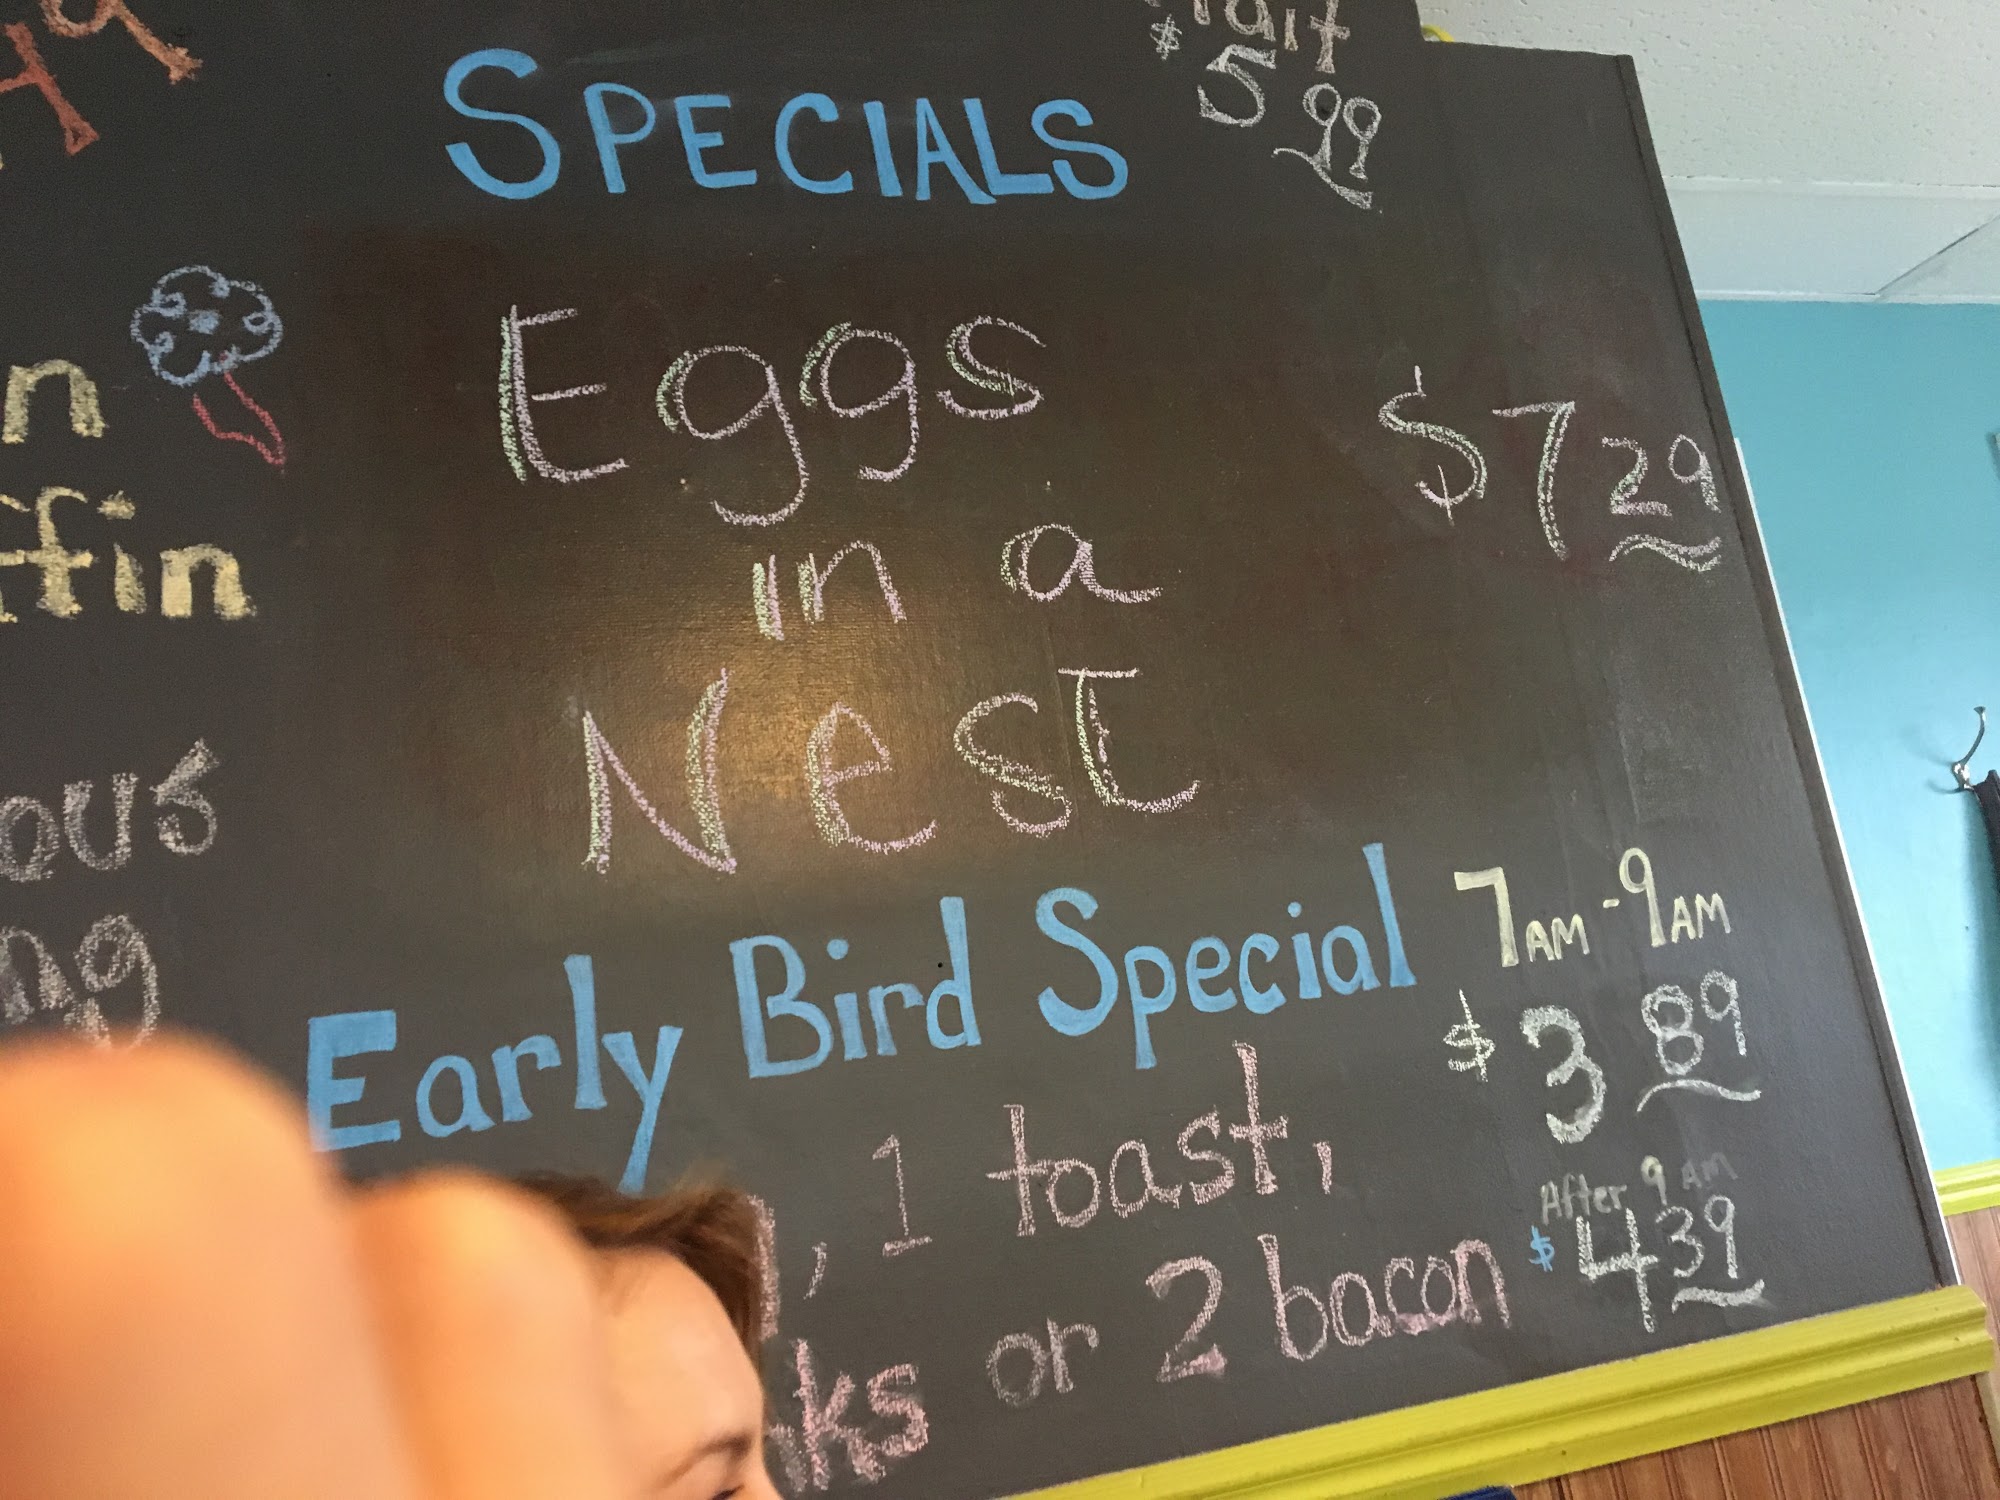 SPECIALS
$5 99
Eggs
in a
Nest
$7 29
Early Bird Special
7AM - 9AM
$3 89
, 1 toast,
or 2 bacon
After 9 AM
$4 39